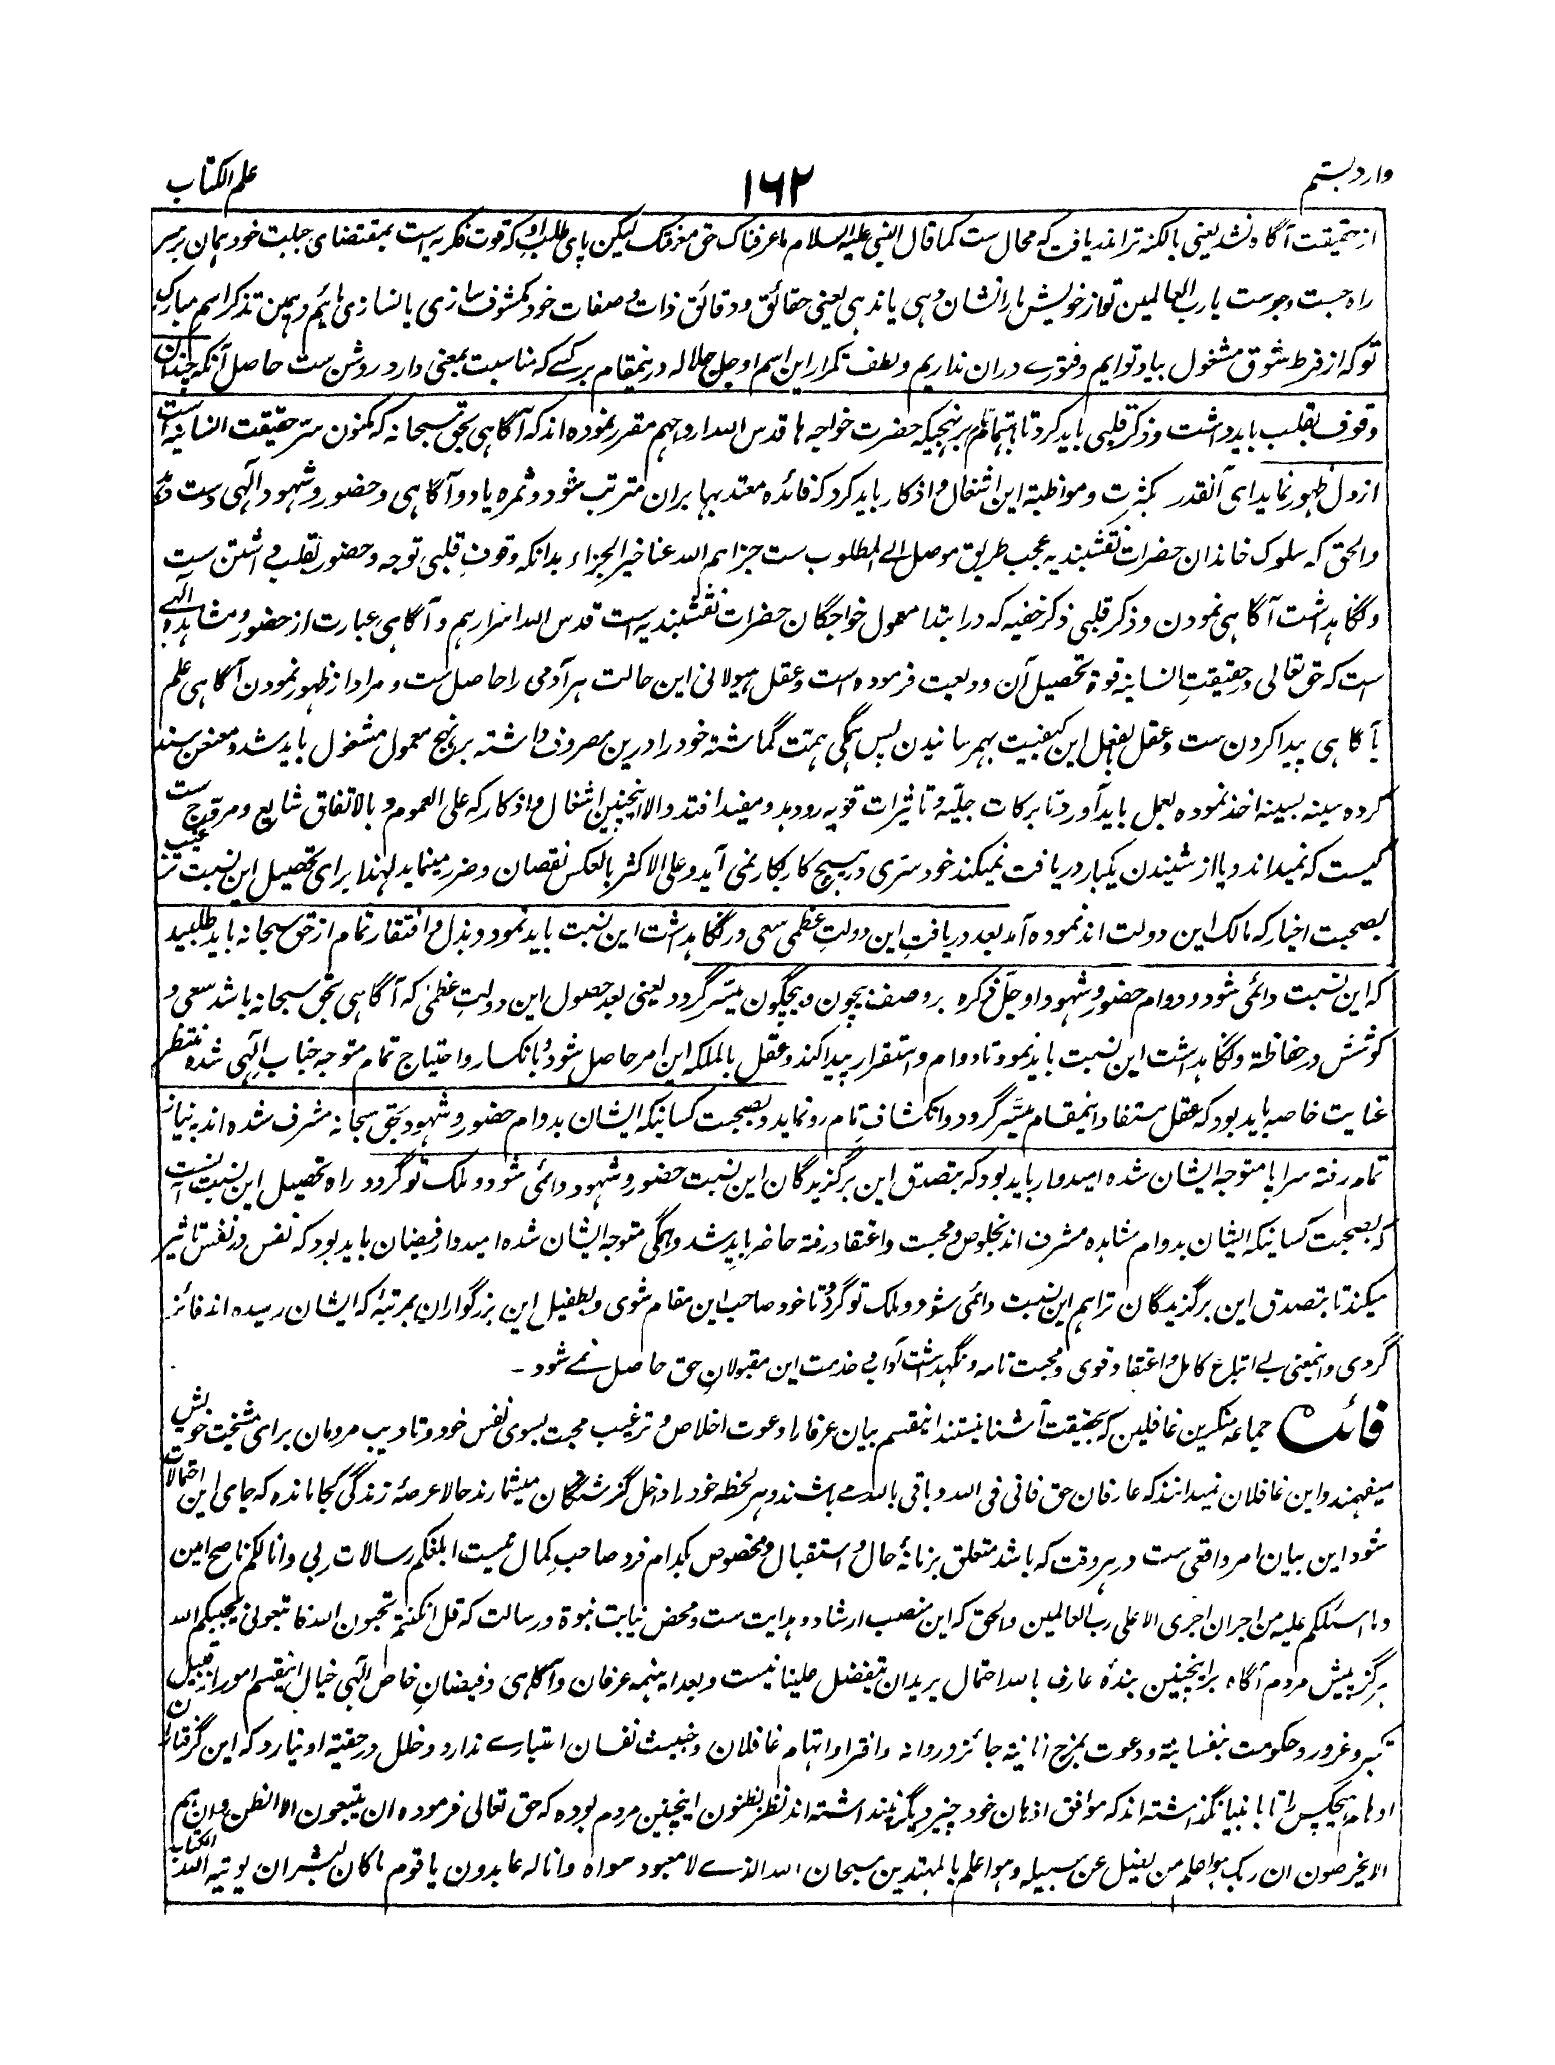 وارد بستم
۱۶۲
علم الکتاب
از حقیقت آگاه نشد یعنی بالکنه ترا نمد یافت که محال ست کما قال النبی علیه السلام ما عرفناک حق معرفتک لیکن پای طلب او که قوت فکریه است بمقتضای جبلت خود بهان بر سر
راه جست و جوست یا رب العالمین تو از خویش مارا نشان دهی یا ندهی یعنی حقائق و دقائق ذات و صفات خود مکشوف سازی یا نسازی مائیم و همین تذکر اسم مبارک
تو که از فرط شوق مشغول بیاد توایم و فتورے دران نداریم و لطف تکرار این اسم او جل جلاله درینمقام بر کسے که مناسبت بمعنی دارد روشن ست حاصل آنکه چندان
وقوف بقلب باید داشت و ذکر قلبی باید کرد تا باهتمام تام بر نهجیکه حضرت خواجه ها قدس الله ارواحهم مقرر نموده اند که آگاهی بحق سبحانه که مکنون سر حقیقت انسانیه است
از دل ظهور نماید ای آنقدر بکثرت و مواظبة این اشغال و اذکار باید کرد که فائده معتد بها بران مترتب شود و ثمره یاد و آگاهی و حضور و شهود الهی دست دهد
والحق که سلوک خاندان حضرات نقشبندیه عجب طریق موصل الی المطلوب ست جزاهم الله عنا خیر الجزاء بدانکه وقوف قلبی توجه و حضور بقلب داشتن ست
و نگاهداشت آگاهی نمودن و ذکر قلبی ذکر خفیه که در ابتدا معمول خواجگان حضرات نقشبندیه است قدس الله اسرارهم و آگاهی عبارت از حضور و مشاهده الهی
است که حق تعالی در حقیقت انسانیه قوة تحصیل آن ودیعت فرموده است و عقل هیولانی این حالت هر آدمی را حاصل ست و مراد از ظهور نمودن آگاهی علم
بآگاهی پیدا کردن ست و عقل بفعل این کیفیت بهم رسانیدن پس همگی همت گماشته خود را درین مصروف داشته بر نهج معمول مشغول باید شد و معنعن سند
کرده سینه بسینه اخذ نموده بعمل باید آورد تا برکات جلیه و تاثیرات قویه رو دهد و مفید افتد والا اینچنین اشغال و اذکار که علی العموم و بالاتفاق شایع و مروج ست
کیست که نمیداند و یا از شنیدن یکبار دریافت نمیکند خود سری در هیچ کار بکار نمی آید و علی الاکثر بالعکس نقصان و ضرر مینماید لهذا برای تحصیل این نسبت
بصحبت اخیار که مالک این دولت اند نموده آمد بعد دریافت این دولت عظمی سعی در نگاهداشت این نسبت باید نمود و بذل و افتقار تمام از حق سبحانه باید طلبید
که این نسبت دائمی شود و دوام حضور و شهود او جل ذکره بر وصف بیچون و بیچگون میسر گردد یعنی بعد حصول این دولت عظمی که آگاهی بحق سبحانه باشد سعی و
کوشش در حفاظة و نگاهداشت این نسبت باید نمود تا دوام و استقرار پیدا کند و عقل بالملکه این امر حاصل شود و بانکسار و احتیاج تمام متوجه جناب الهی شده منتظر
عنایت خاصه باید بود که عقل مستفاد اینمقام میسر گردد و انکشاف تام رو نماید و بصحبت کسانیکه ایشان بدوام حضور و شهود بحق سبحانه مشرف شده اند به نیاز
تمام رفته سراپا متوجه ایشان شده امیدوار باید بود که بتصدق این برگزیدگان این نسبت حضور و شهود دائمی شود و ملک تو گردد و راه تحصیل این نسبت آنست
که بصحبت کسانیکه ایشان بدوام مشاهده مشرف اند بخلوص و محبت و اعتقاد رفته حاضر باید شد و همگی متوجه ایشان شده امیدوار فیضان باید بود که نفس در نفس تاثیر
میکند تا بتصدق این برگزیدگان ترا هم این نسبت دائمی شود و ملک تو گردد و تا خود صاحب این مقام شوی و بطفیل این بزرگواران بمرتبۀ که ایشان رسیده اند فائز
گردی و اینمعنی بے اتباع کامل و اعتقاد قوی و محبت تامه و نگهداشت آداب خدمت این مقبولان حق حاصل نمے شود ـ
فائدہ جماعه منکرین غافلین که بحقیقت آشنا نیستند اینقسم بیان عرفا را دعوت اخلاص و ترغیب محبت بسوی نفس خود و تادیب مردمان برای مشیخت خویش
میفهمند و این غافلان نمیدانند که عارفان حق فانی فی الله و باقی بالله مے باشند و هر لحظه خود را داخل گزشتگان میشمارند حالا عرصۀ زندگی کجا مانده که جای این احتمالات
شود این بیان امر واقعی ست در هر وقت که باشد متعلق بزمانۀ حال و استقبال و مخصوص بکدام فرد صاحب کمال نیست ابلغکم رسالات ربی وانا لکم ناصح امین
وما اسئلکم علیه من اجر ان اجری الا علی رب العالمین والحق که این منصب ارشاد و هدایت ست و محض نیابت نبوة و رسالت که قل ان کنتم تحبون الله فاتبعونی یحببکم الله
هرگز پیش مردم آگاه بر اینچنین بندۀ عارف بالله احتمال یرید ان یتفضل علینا نیست و بعد اینهمه عرفان و آگاهی و فیضان خاص الهی خیال اینقسم امور از قبیل
تکبر و غرور و حکومت بنفسانیة و دعوت بمزج انانیة جائز و روا نه و افترا و اتهام غافلان و خبیث نفسان اعتبارے ندارد و خلل در حقیة او نیارد که این گرفتاران
اوهام هیچکس را تا بانبیا نگذاشته اند که موافق اذهان خود چیز دیگر نپنداشته اند نظر بظنون اینچنین مردم بوده که حق تعالی فرموده ان یتبعون الا الظن وان هم
الا یخرصون ان ربک هو اعلم من یضل عن سبیله وهو اعلم بالمهتدین سبحان الله الذے لا معبود سواه وانا له عابدون یا قوم ما کان لبشر ان یوتیه الله الکتاب